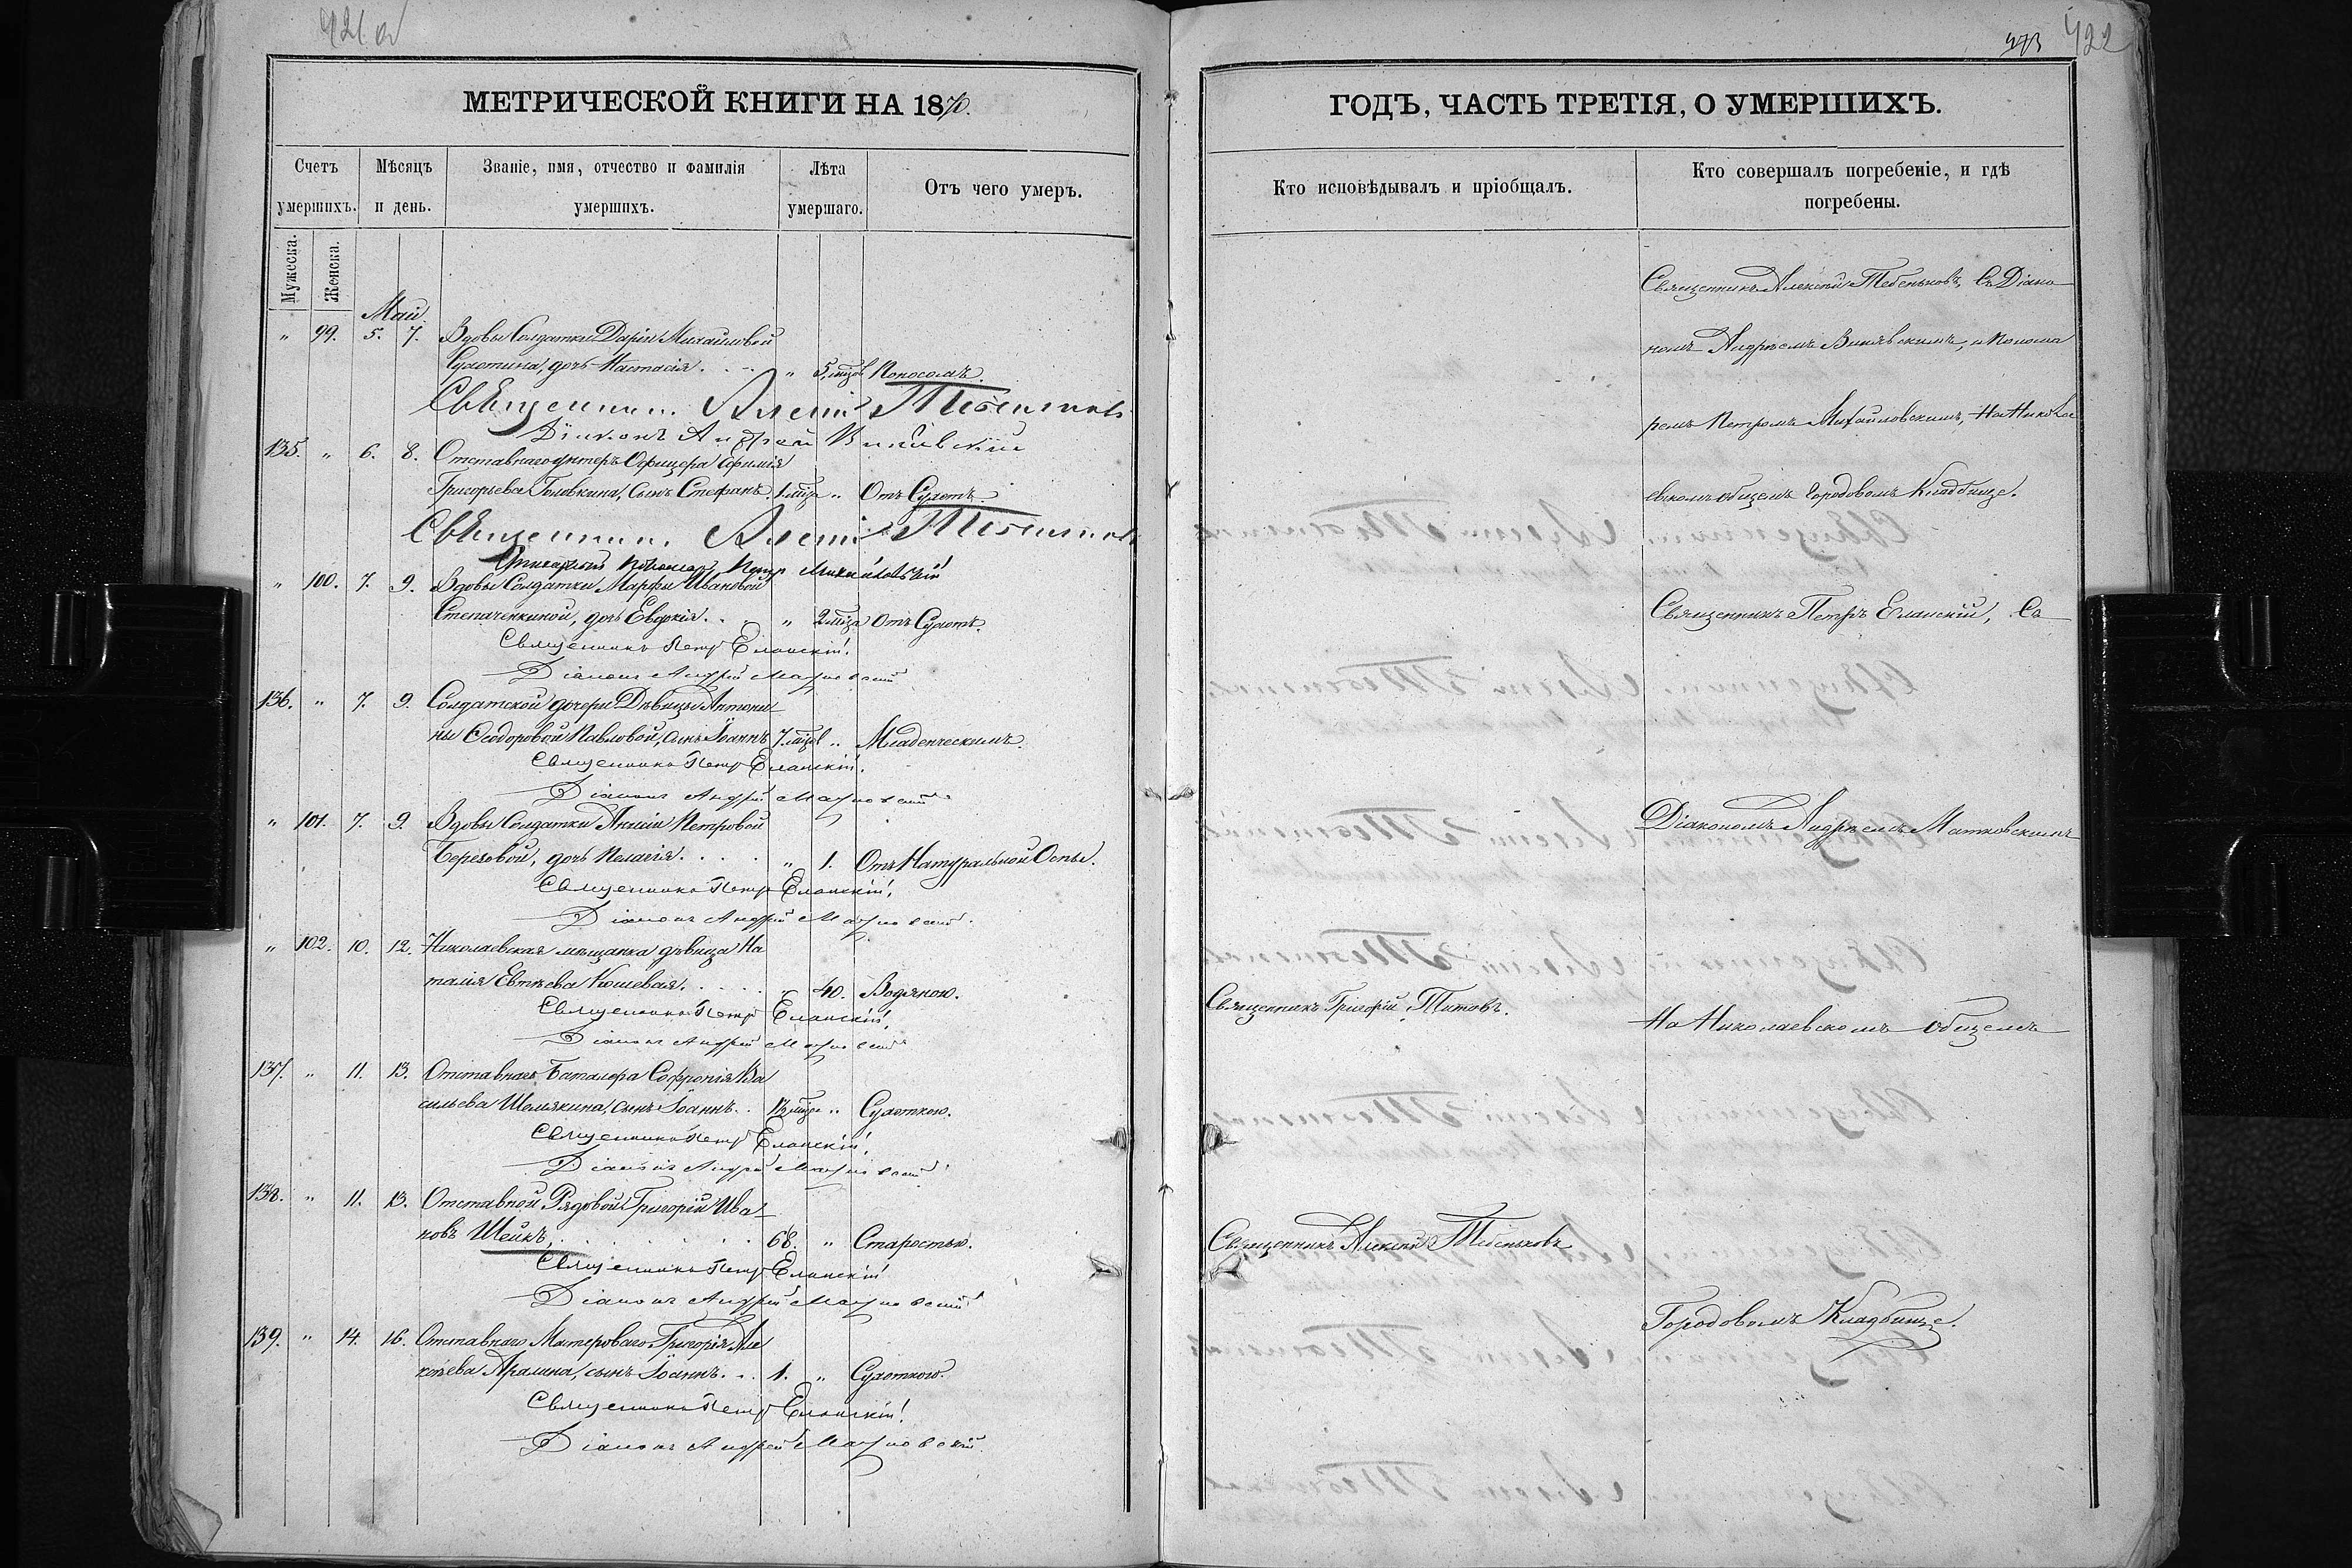 421 об
МЕТРИЧЕСКОЙ КНИГИ НА 1870.
Счетъ умершихъ.
Мѣсяцъ и день.
Званіе, имя, отчество и фамилія умершихъ.
Лѣта умершаго.
Отъ чего умеръ.
Мужеска.
Женска.
Май.
" 99. 5. 7. Вдовы Солдатки Дарьи Михайловой
дочь Настасія. " 5 мцов Поносомъ.
Священникъ Алексій Тебеньковъ
Діаконъ Андрей
135. " 6. 8. Отставнаго унтеръ Офицера
Григорьева Головкина, Сынъ Стефанъ. " Отъ Сухотъ.
Священникъ Алексій Тебеньковъ
Пономарь Петръ Михайловскій
" 100. 7. 9. Вдовы Солдатки Марфы Ивановой
Степаченкиной, дочь Евдокія. " 2 мца Отъ Сухотъ.
Священникъ Петръ Еланскій.
Діаконъ Андрей Матковскій
136. " 7. 9. Солдатской дочери Дѣвицы Антони-
ны Ѳеодоровой Павловой, сынъ Іоаннъ 7 мцов " Младенческимъ.
Священникъ Петръ Еланскій.
Діаконъ Андрей Матковскій
" 101. 7. 9. Вдовы Солдатки Петровой
Березовой, дочь Пелагія. " 1. Отъ Натуральной Оспы.
Священникъ Петръ Еланскій.
Діаконъ Андрей Матковскій.
" 102. 10. 12. Николаевская мѣщанка дѣвица На
талія Евтѣева Кошевая. " 40. Водяною.
Священникъ Петръ Еланскій.
Діаконъ Андрей Матковскій
137. " 11. 13. Отставнаго Баталера Софронія Ва
сильева Шемякина, сынъ Іоаннъ. " Сухоткою.
Священникъ Петръ Еланскій.
Діаконъ Андрей Матковскій
138. " 11. 13. Отставной Рядовой Григорій Ива-
новъ Шейкъ, 68. " Старостью.
Священникъ Петръ Еланскій
Діаконъ Андрей Матковскій
139. " 14. 16. Отставнаго Мастероваго Григорія Але
ксѣева Аралина, сынъ Іоаннъ. 1. " Сухоткою.
Священникъ Петръ Еланскій.
Діаконъ Андрей Матковскій.
422
ГОДЪ, ЧАСТЬ ТРЕТІЯ, О УМЕРШИХЪ.
Кто исповѣдывалъ и пріобщалъ.
Кто совершалъ погребеніе, и гдѣ погребены.
Священникъ Алексій Тебеньковъ, Съ Діако-
номъ Андреемъ и Понома
ремъ Петромъ Михайловскимъ, На Никола
евскомъ общемъ Городовомъ Кладбище.
Священникъ Петръ Еланскій, Съ
Діакономъ Андреемъ Матковскимъ
Священникъ Григорій Титовъ.
На Николаевскомъ общемъ
Священникъ Алексій Тебеньковъ
Городовомъ Кладбище.